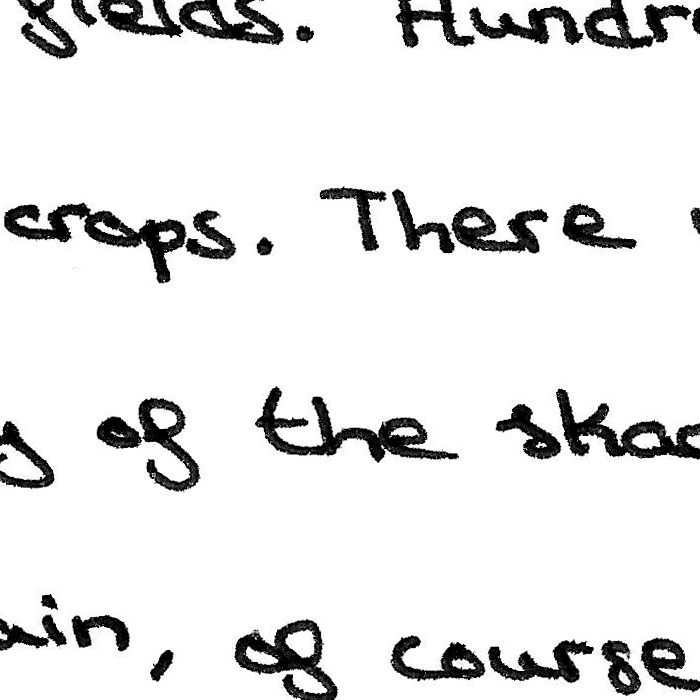 fields. Hundr
crops. There
of the skad
ain, of course